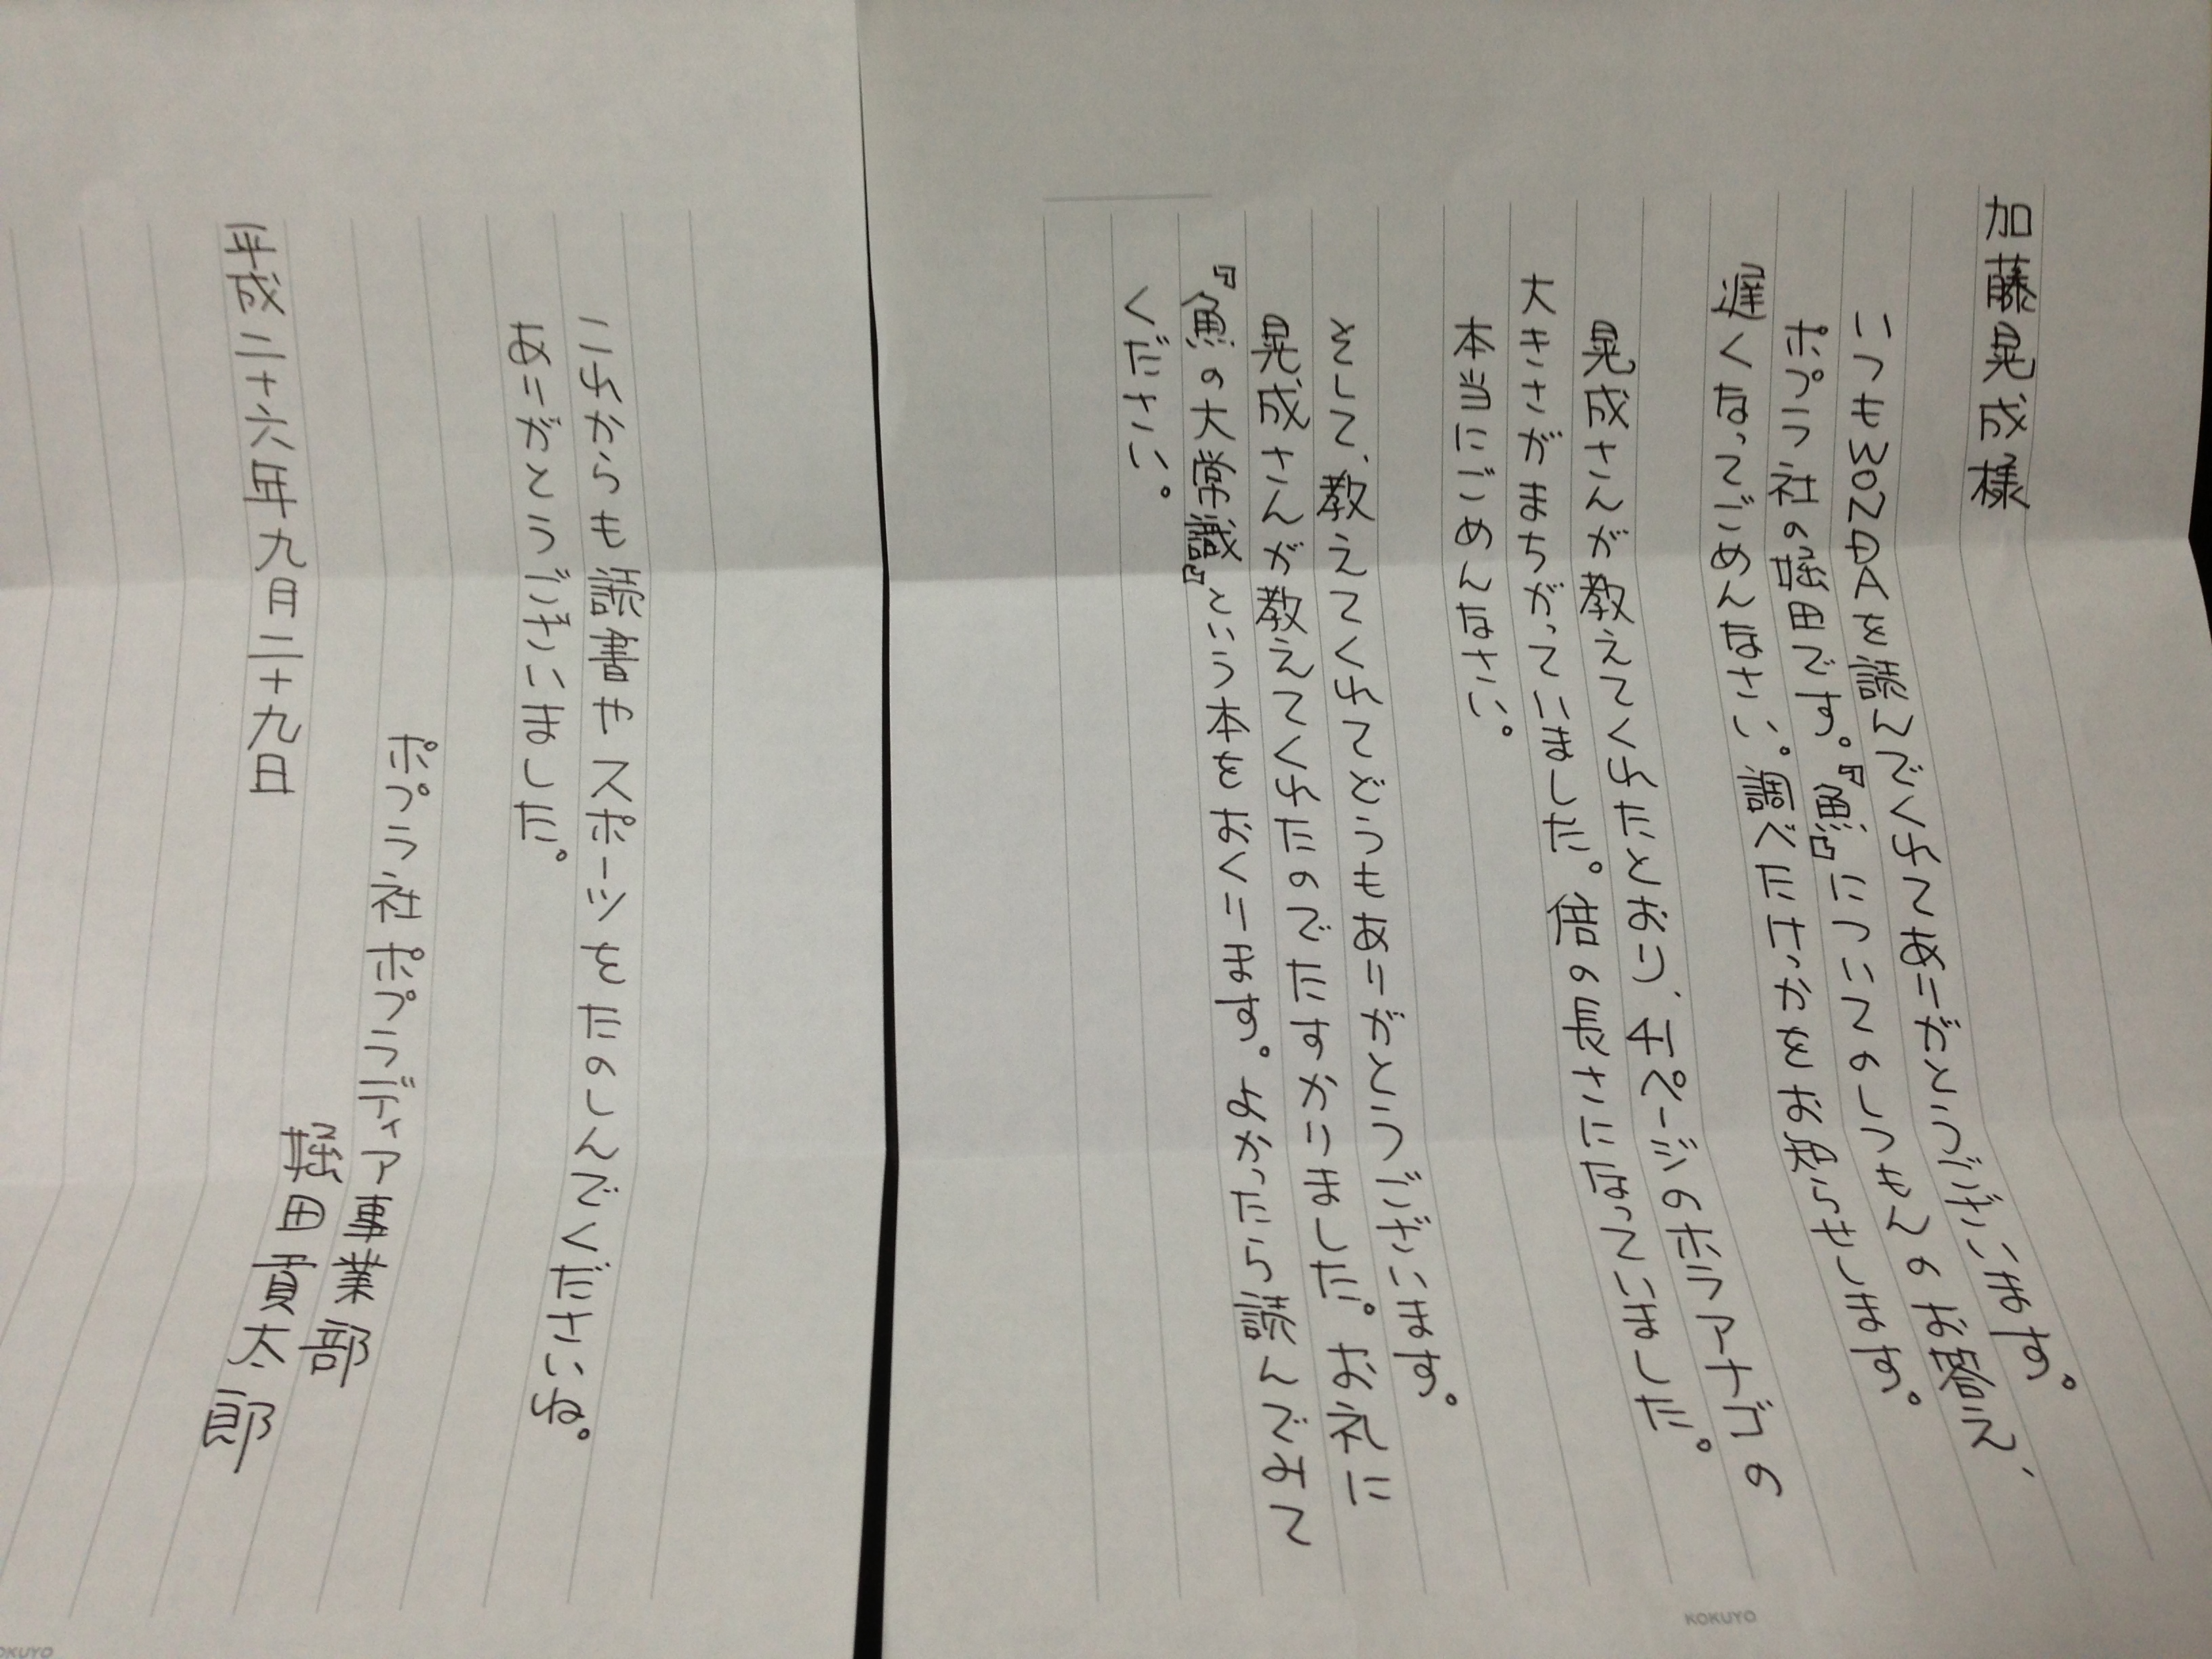 加藤晃成様
いつもWONDAを読んでくれてありがとうございます。
ポプラ社の 田です。『魚』についてのしつもんのお
遅くなってごめんなさい。調べたけっかをお知らせします。
晃成さんが教えてくれたとおり、 ページの の
大きさがまちがっていました。倍の長さになっていました。
本当にごめんなさい。
そして、教えてくれてどうもありがとうございます。
晃成さんが教えてくれたのでたすかりました。お礼に
『魚の大常識』という本をおくります。よかったら読んでみて
ください。
これからも読書やスポーツをたのしんでくださいね。
ありがとうございました。
ポプラ社 ポプラディア事業部
平成二十六年九月二十九日 田 太郎
KOKUYO
KOKUYO